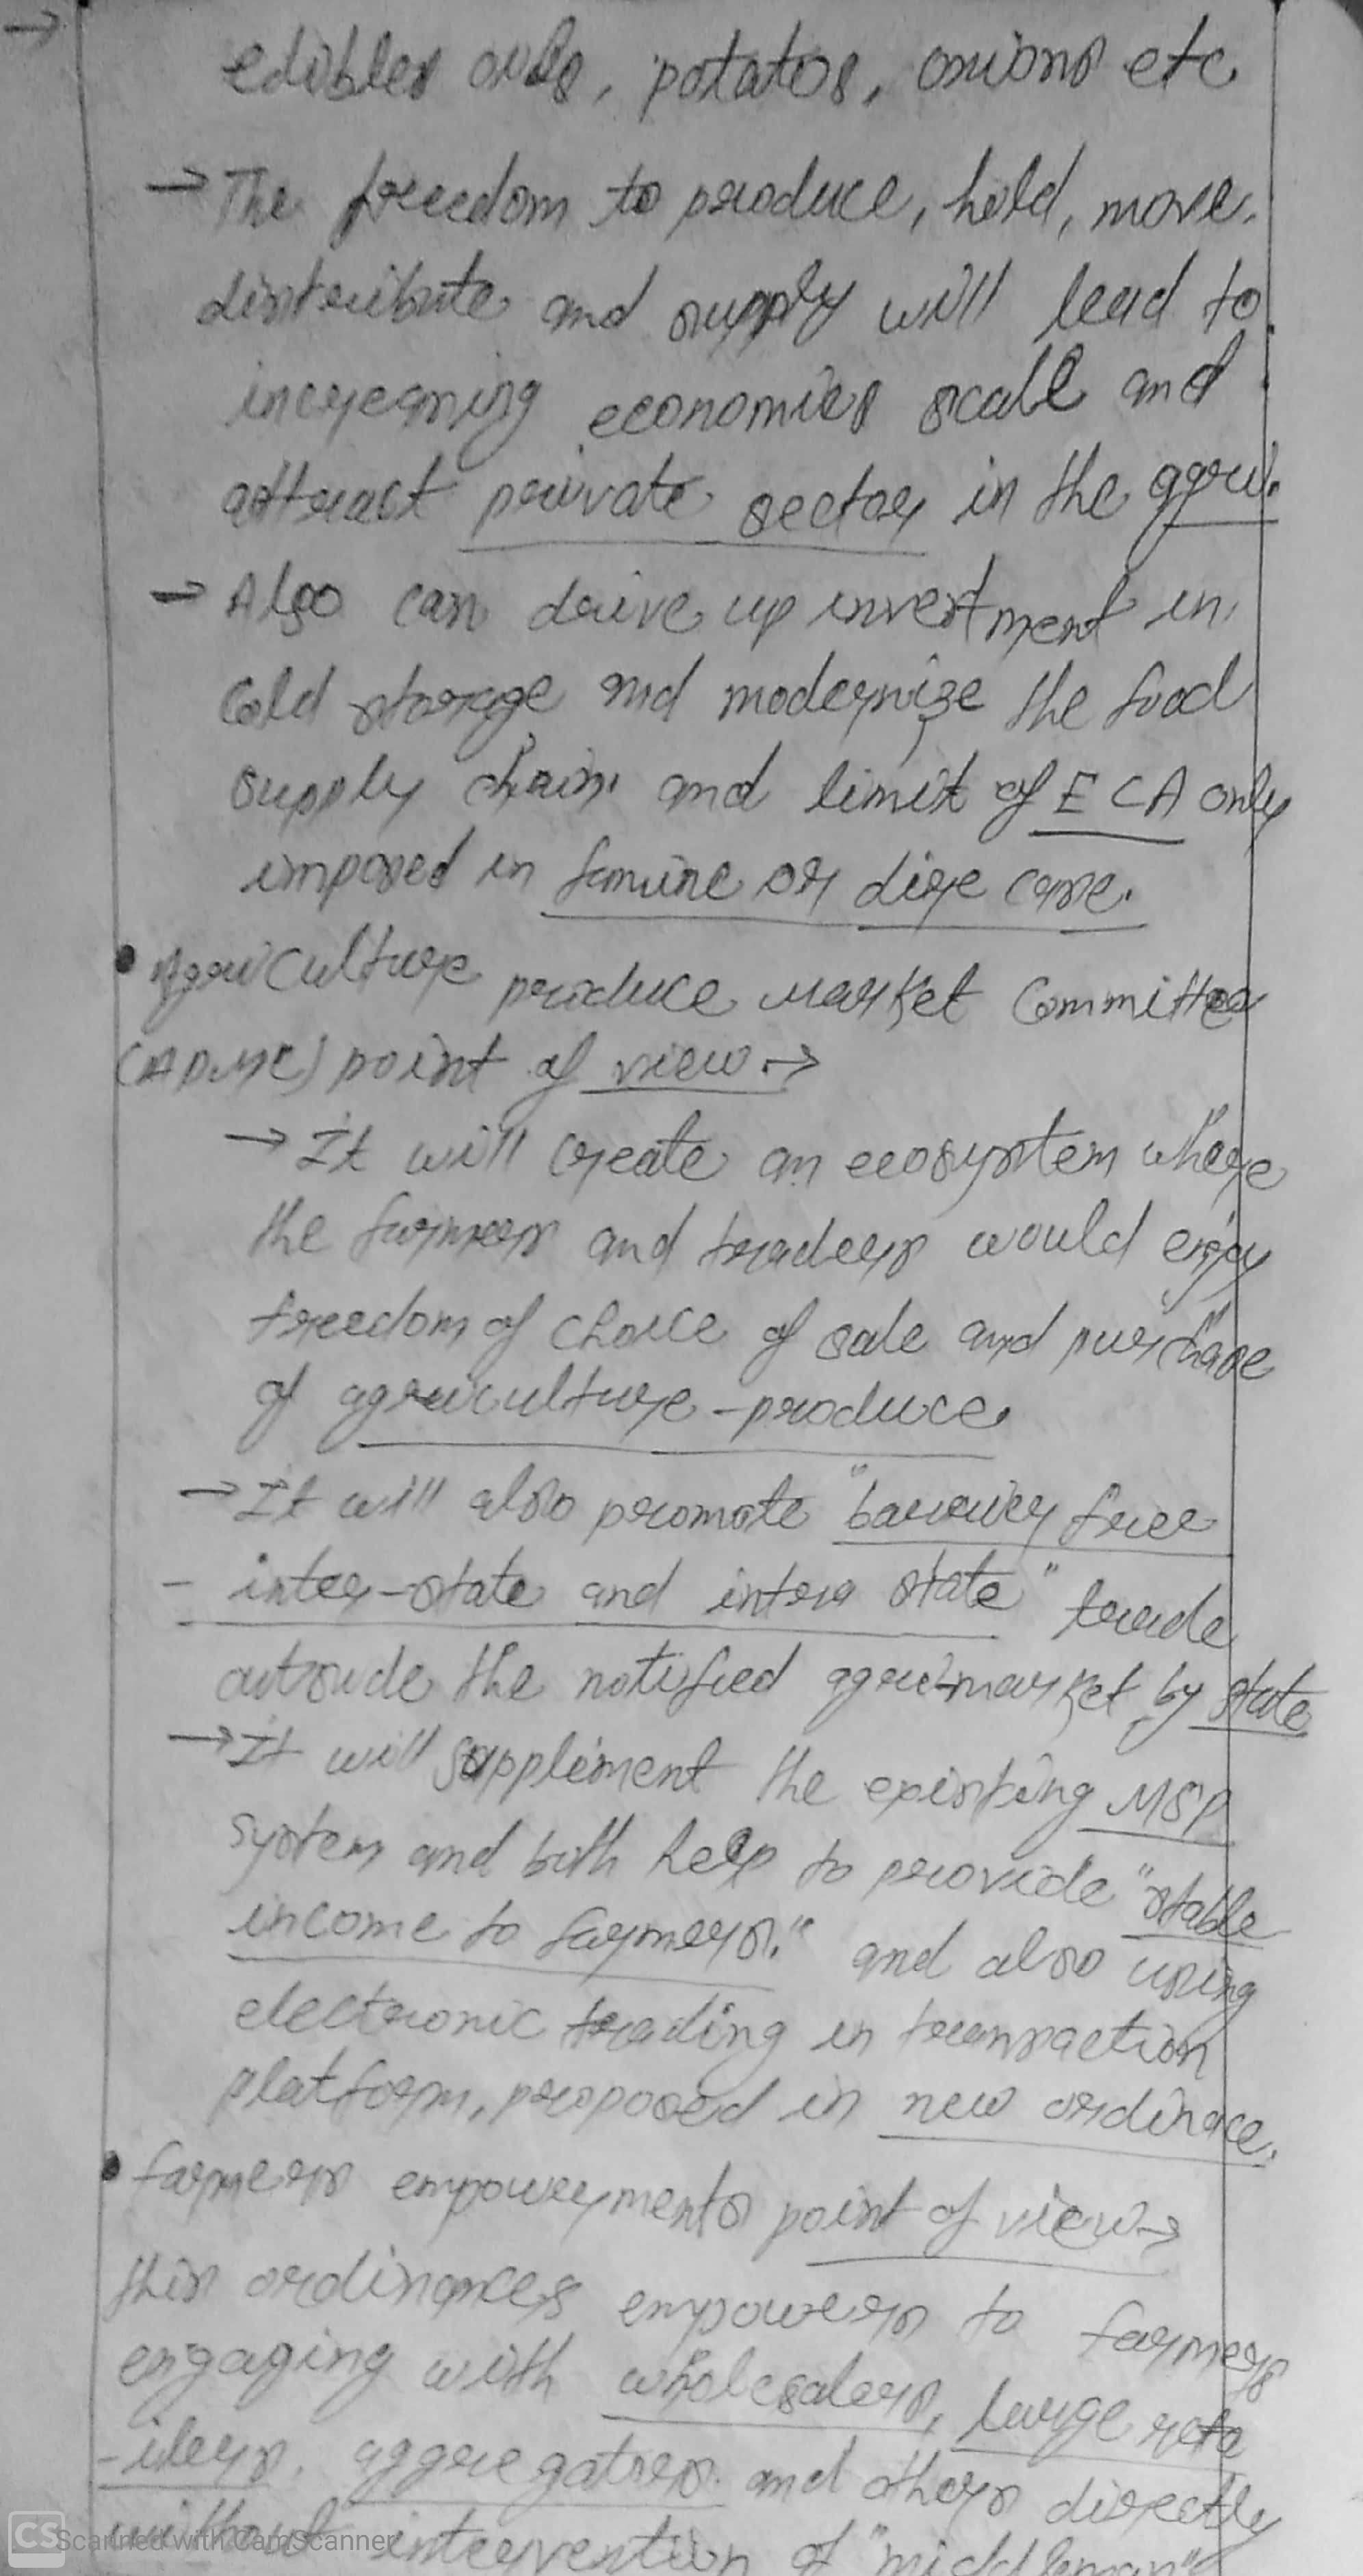 →
edibles oils, potatos, onions etc
→ The freedom to produce, hold, move,
distribute and supply will lead to
increasing economies scale and
attract private sector in the agri.
→ Also can drive up investment in
Cold storage and modernize the food
supply chain and limit of ECA only
imposed in famine or dire case.
• Agriculture produce Market Committee
(APMC) point of view →
→ It will create an ecosystem where
the farmers and traders would enjoy
freedom of choice of sale and purchase
of agriculture-produce.
→ It will also promote "barrier free
- inter-state and intra state" trade
outside the notified agri-market by state
→ It will supplement the existing MSP
system and both help to provide "stable
income to farmers." and also using
electronic trading in transaction
platform, proposed in new ordinace.
• farmers empowerments point of view →
this ordinances empowers to farmers
engaging with wholesalers, large reta
-ilers, aggregators and others directly
without intervention of "middleman"
CS Scanned with CamScanner